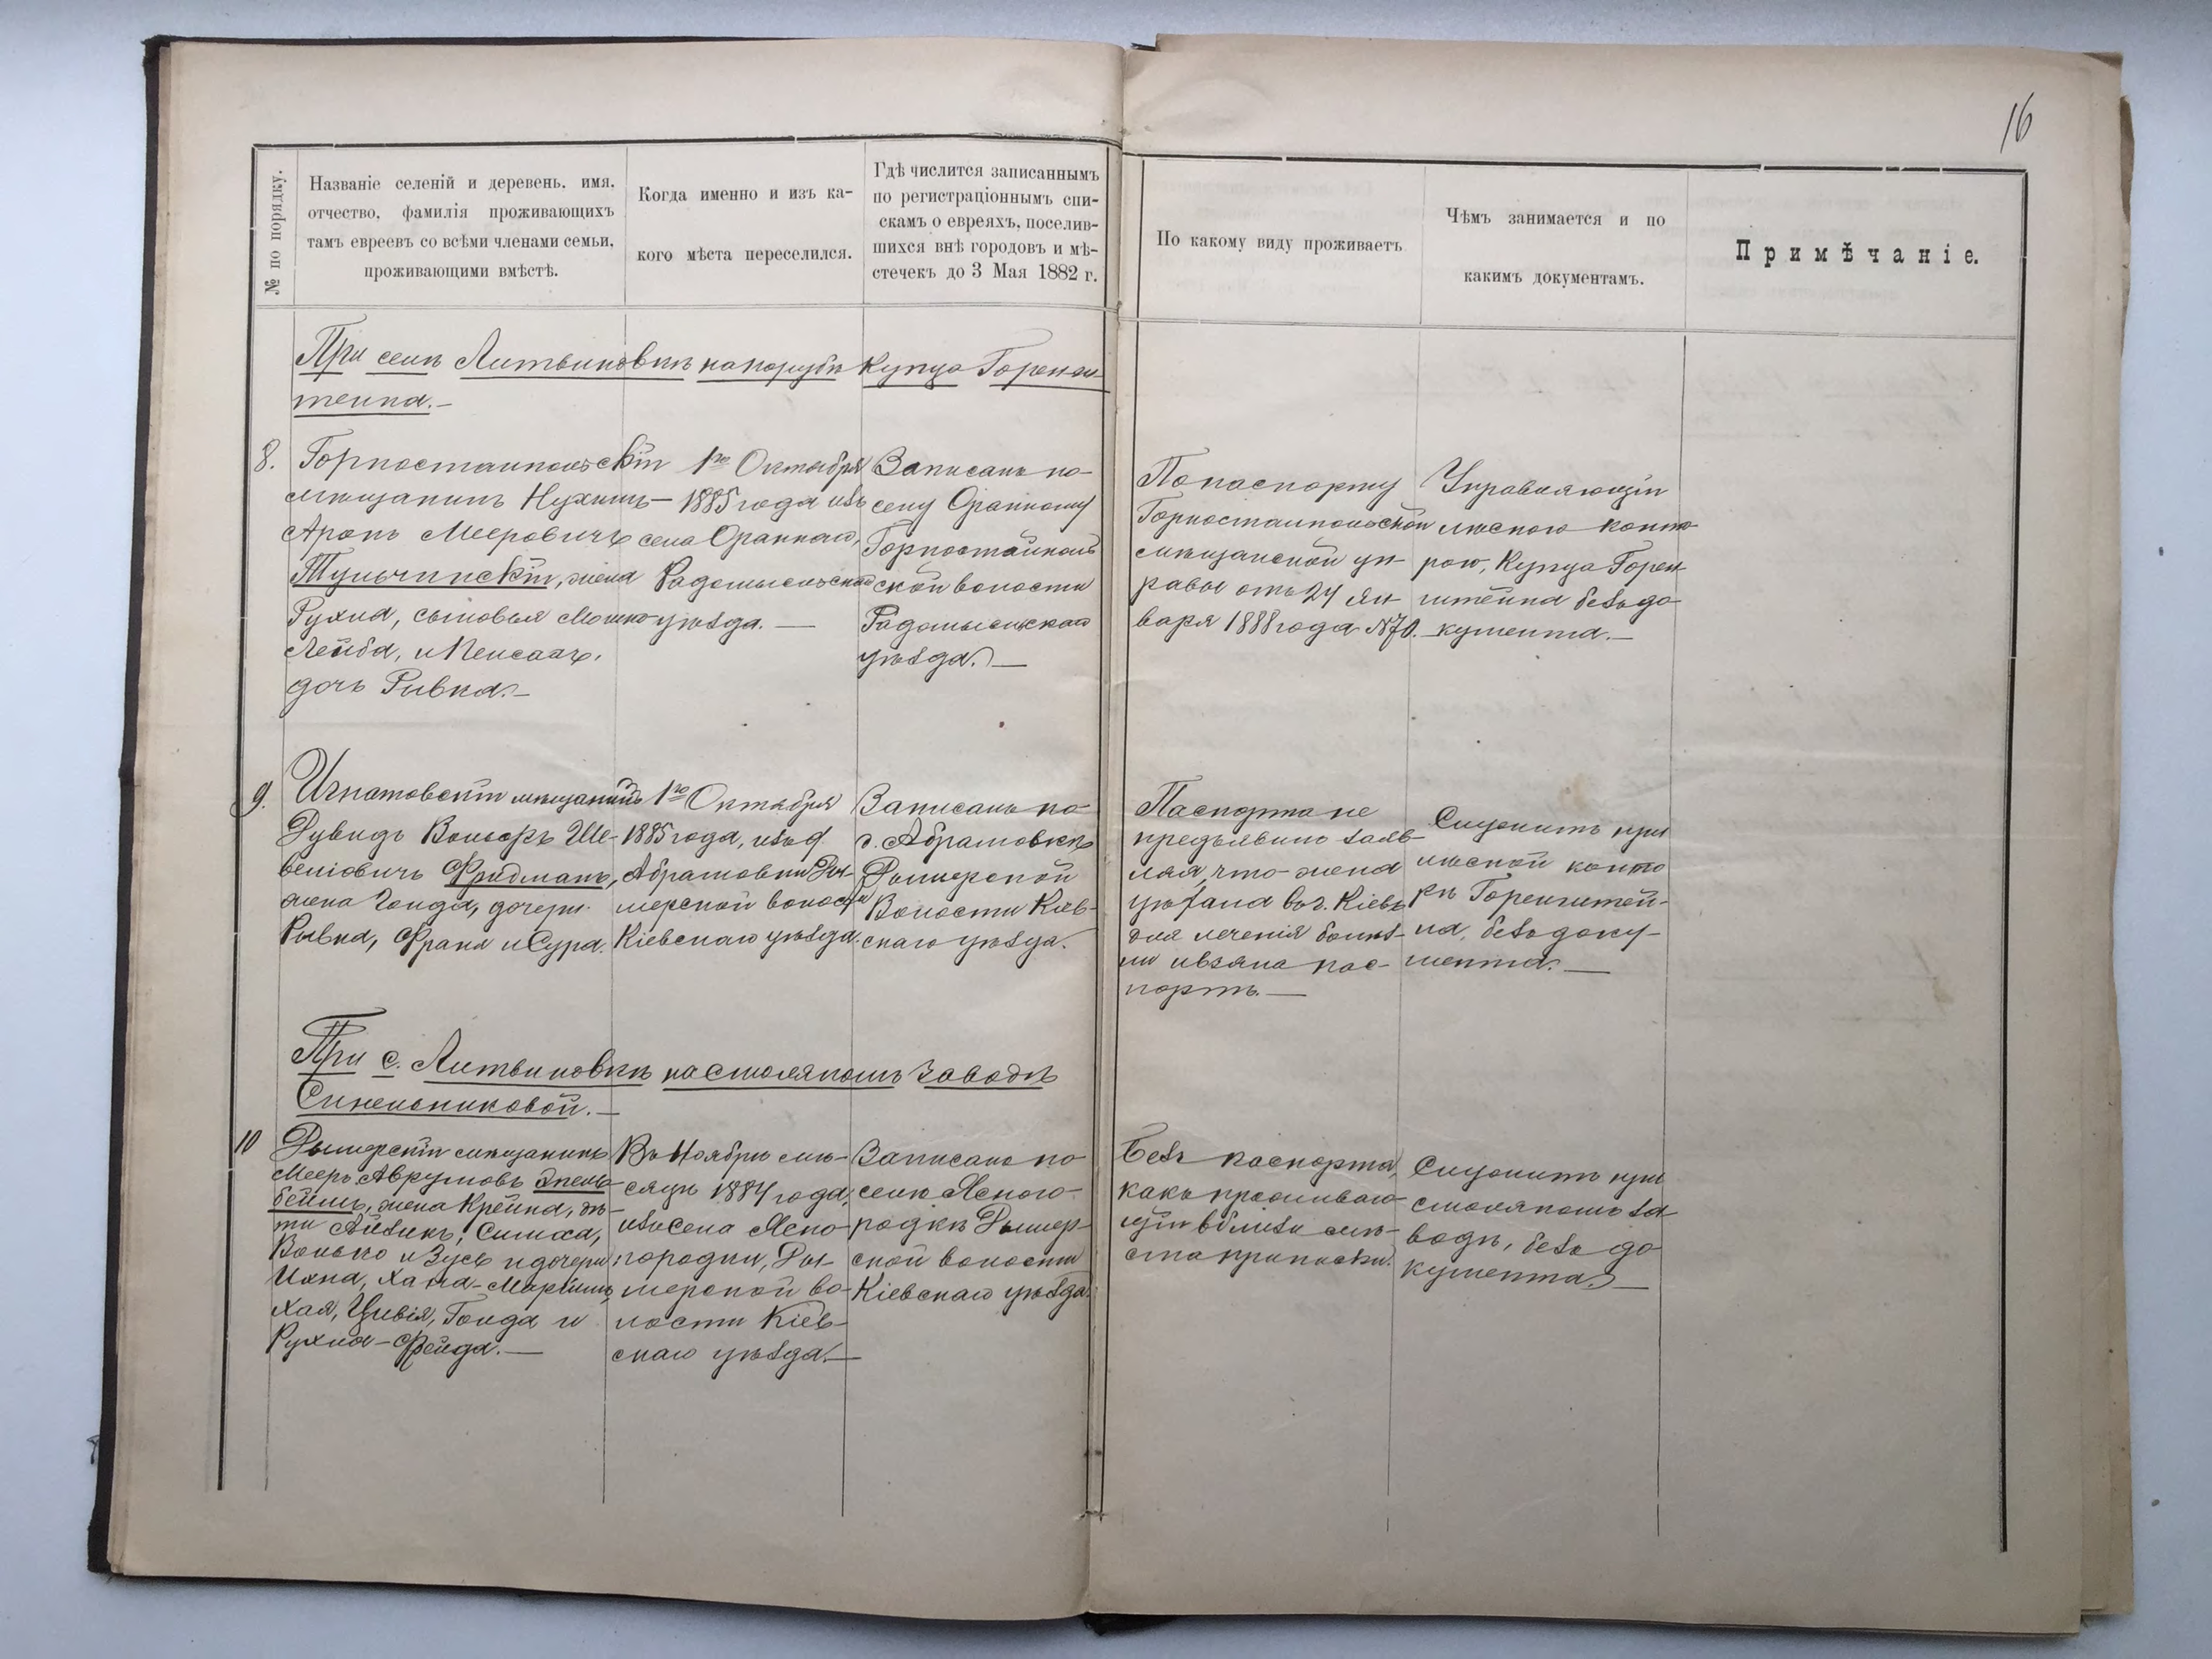 16
№ по порядку.
Названіе селеній и деревень, имя,
отчество, фамилія проживающихъ
тамъ евреевъ со всѣми членами семьи,
проживающими вмѣстѣ.
Когда именно и изъ ка-
кого мѣста переселился.
Гдѣ числится записаннымъ
по регистраціоннымъ спи-
скамъ о евреяхъ, поселив-
шихся внѣ городовъ и мѣ-
стечекъ до 3 Мая 1882 г.
По какому виду проживаетъ
Чѣмъ занимается и по
какимъ документамъ.
Примѣчаніе.
При селѣ Литвиновкѣ на порубѣ Купца Горенш-
тейна.—
8.
Горностайпольскій
мѣщанинъ Нухимъ—
Аронъ Мееровичъ
Тульчинскій, жена
Рухля, сыновья Мошко
Лейба, и Пейсахъ,
дочь Ривка.—
1го Октября
1885 года изъ
села Ораннаго,
Радомысльскаго
уѣзда.—
Записанъ по
селу Оранному
Горностайполь
ской волости
Радомысльскаго
уѣзда.—
По паспорту
Горностайпольской
мѣщанской уп-
равы отъ 24 Ян-
варя 1888 года №70.
Управляющій
лѣсною конто-
рою, Купца Горен-
штейна безъ до-
кумента.—
9.
Игнатовскій мѣщанинъ
Дувидъ Вольфъ Ше-
веліовичъ Фридманъ,
жена Голда, дочери
Ривка, Франя и Сура.
1го Октября
1885 года, изъ д.
Абрамовки Ды-
мерской волости
Кіевскаго уѣзда.
Записанъ по
д. Абрамовкѣ
Дымерской
Волости Кіев-
скаго уѣзда.
Паспорта не
предъявилъ заяв-
ляя, что жена
уѣхала въ г. Кіевъ
для леченія болѣз-
ни и взяла пас-
портъ.—
Служитъ при
лѣсной конто
рѣ Горенштей-
на, безъ доку-
мента.—
При с. Литвиновкѣ на смоляномъ заводѣ
Синельниковой.—
10
Дымерскій мѣщанинъ
Мееръ Аврумовъ Эпель-
беймъ, жена Крейна, дѣ-
ти Айзикъ, Симха,
Волько и Зусь и дочери
Ихна, Хана-Маріимъ,
Хая, Цивія, Голда и
Рухля-Фейга.—
Въ Ноябрѣ мѣ-
сяцѣ 1884 года,
изъ села Ясно-
городки, Ды-
мерской во-
лости Кіев-
скаго уѣзда.—
Записанъ по
селу Ясного-
родкѣ Дымер-
ской волости
Кіевскаго уѣзда.
Безъ паспорта,
какъ проживаю-
щій вблизи мѣ-
ста приписки.
Служитъ при
смоляномъ за
водѣ, безъ до-
кумента.—